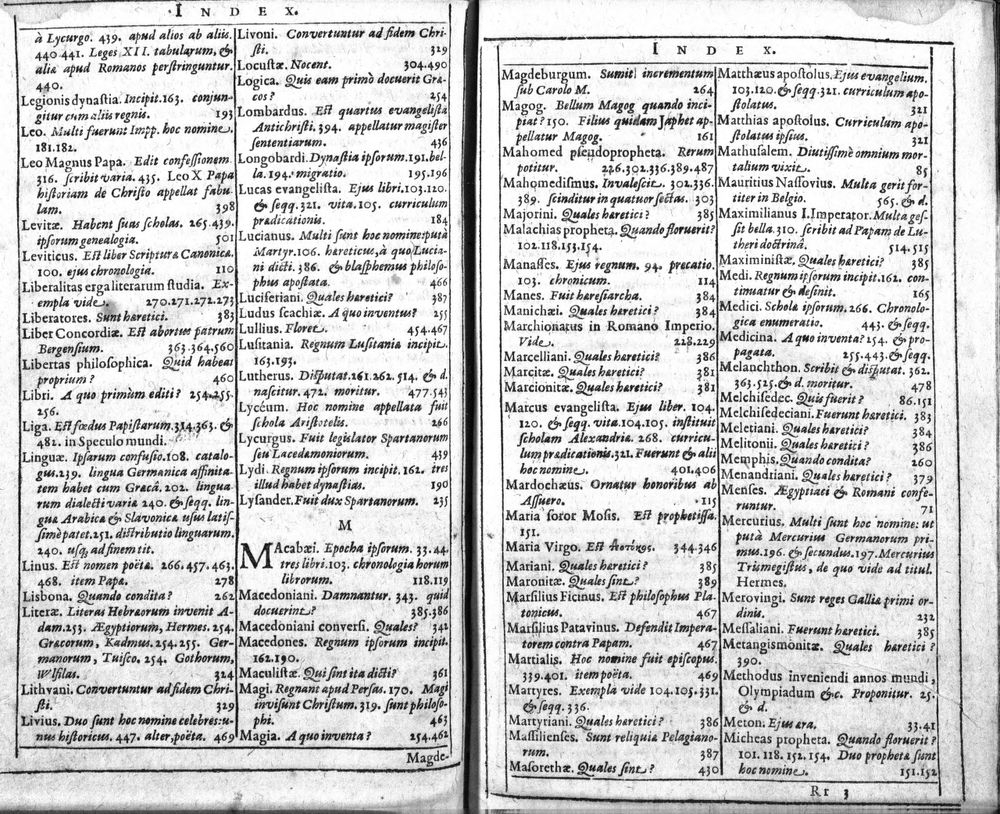 INDEX.
à Lycurgo. 439. apud alios ab aliis.
440 441. Leges XII. tabularum, &
aliæ apud Romanos perstringuntur.
440.
Legionis dynastia. Incipit. 163. conjun-
gitur cum aliis regnis. 193
Leo. Multi fuerunt Impp. hoc nomine.
181.182.
Leo Magnus Papa. Edit confessionem
316. scribit varia. 435. Leo X Papa
historiam de Christo appellat fabu
lam. 398
Levitæ. Habent suas scholas. 265.439.
ipsorum genealogia. 501
Leviticus. Est liber Scripturæ Canonicæ.
100. ejus chronologia. 110
Liberalitas erga literarum studia. Ex-
empla vide. 270.271.272.273
Liberatores. Sunt hæretici. 383
Liber Concordiæ. Est abortus patrum
Bergensium. 363.364.560
Libertas philosophica. Quid habeat
proprium? 460
Libri. A quo primùm editi? 254.255.
256.
Liga. Est fœdus Papistarum. 314.363. &
482. in Speculo mundi.
Linguæ. Ipsarum confusio. 108. catalo-
gus. 239. lingua Germanica affinita-
tem habet cum Græcâ. 202. lingua-
rum dialecti variæ 240. & seqq. lin-
gua Arabica & Slavonica usus latis-
simè patet. 251. distributio linguarum.
240. usq; ad finem tit.
Linus. Est nomen poëtæ. 266.457.463.
468. item Papæ. 278
Lisbona. Quando condita? 262
Literæ. Literas Hebræorum invenit A-
dam. 253. Ægyptiorum, Hermes. 254.
Græcorum, Kadmus. 254.255. Ger-
manorum, Tuisco. 254. Gothorum,
Wlfilas. 324
Lithvani. Convertuntur ad fidem Chri-
sti. 329
Livius. Duo sunt hoc nomine celebres: u-
nus historicus. 447. alter, poëta. 469
Livoni. Convertuntur ad fidem Chri-
sti. 329
Locustæ. Nocent. 304.490
Logica. Quis eam primò docuerit Græ-
cos? 254
Lombardus. Est quartus evangelista
Antichristi. 394. appellatur magister
sententiarum. 436
Longobardi. Dynastia ipsorum. 191. bel-
la. 194. migratio. 195.196
Lucas evangelista. Ejus libri. 103.120.
& seqq. 321. vita. 105. curriculum
prædicationis. 184
Lucianus. Multi sunt hoc nomine: putà
Martyr. 106. hæreticus, à quo Lucia-
ni dicti. 386. & blasphemus philoso-
phus apostata. 466
Luciferiani. Quales hæretici? 387
Ludus scachiæ. A quo inventus? 255
Lullius. Floret. 454.467
Lusitania. Regnum Lusitaniæ incipit.
163.193.
Lutherus. Disputat. 261.262. 514. & d.
nascitur. 472. moritur. 477.545
Lycéum. Hoc nomine appellata fuit
schola Aristotelis. 266
Lycurgus. Fuit legislator Spartanorum
seu Lacedæmoniorum. 439
Lydi. Regnum ipsorum incipit. 162. tres
illud habet dynastias. 190
Lysander. Fuit dux Spartanorum. 235
M
MAcabæi. Epocha ipsorum. 33.44.
tres libri. 103. chronologia horum
librorum. 118.119
Macedoniani. Damnantur. 343. quid
docuerint? 385.386
Macedoniani conversi. Quales? 342
Macedones. Regnum ipsorum incipit.
162.190.
Maculistæ. Qui sint ita dicti? 361
Magi. Regnant apud Persas. 170. Magi
invisunt Christum. 319. sunt philoso-
phi. 463
Magia. A quo inventa? 254.462
Magde-
INDEX.
Magdeburgum. Sumit incrementum
sub Carolo M. 264
Magog. Bellum Magog quando inci
piat? 150. Filius quidam Japhet ap-
pellatur Magog. 161
Mahomed pseudopropheta. Rerum
potitur. 226.302.336.389.487
Mahomedismus. Invalescit. 302.336.
389. scinditur in quatuor sectas. 303
Majorini. Quales hæretici? 385
Malachias propheta. Quando floruerit?
102.118.153.154.
Manasses. Ejus regnum. 94. precatio.
103. chronicum. 114
Manes. Fuit hæresiarcha. 384
Manichæi. Quales hæretici? 384
Marchionatus in Romano Imperio.
Vide. 228.229
Marcelliani. Quales hæretici? 386
Marcitæ. Quales hæretici? 381
Marcionitæ. Quales hæretici? 381
Marcus evangelista. Ejus liber. 104.
120. & seqq. vita. 104.105. instituit
scholam Alexandriæ. 268. curricu-
lum prædicationis. 321. Fuerunt & alii
hoc nomine. 401.406
Mardochæus. Ornatur honoribus ab
Assuero. 115
Maria soror Mosis. Est prophetissa.
151.
Maria Virgo. Est Θεοτόκος. 344.346
Mariani. Quales hæretici? 385
Maronitæ. Quales sint? 389
Marsilius Ficinus. Est philosophus Pla-
tonicus. 467
Marsilius Patavinus. Defendit Impera-
torem contra Papam. 467
Martialis. Hoc nomine fuit episcopus.
339.401. item poëta. 469
Martyres. Exempla vide 104.105.331.
& seqq. 336.
Martyriani. Quales hæretici? 386
Massilienses. Sunt reliquiæ Pelagiano-
rum. 387
Masorethæ. Quales sint? 430
Matthæus apostolus. Ejus evangelium.
103.120. & seqq. 321. curriculum apo-
stolatus. 321
Matthias apostolus. Curriculum apo-
stolatus ipsius. 321
Mathusalem. Diutissimè omnium mor-
talium vixit. 85
Mauritius Nassovius. Multa gerit for-
titer in Belgio. 565. & d.
Maximilianus I. Imperator. Multa ges-
sit bella. 310. scribit ad Papam de Lu-
theri doctrinâ. 514.515
Maxiministæ. Quales hæretici? 385
Medi. Regnum ipsorum incipit. 162. con-
tinuatur & desinit. 165
Medici. Schola ipsorum. 266. Chronolo-
gica enumeratio. 443. & seqq.
Medicina. A quo inventa? 254. & pro-
pagata. 255.443. & seqq.
Melanchthon. Scribit & disputat. 362.
363.525. & d. moritur. 478
Melchisedec. Quis fuerit? 86.151
Melchisedeciani. Fuerunt hæretici. 383
Meletiani. Quales hæretici? 384
Melitonii. Quales hæretici? 386
Memphis. Quando condita? 260
Menandriani. Quales hæretici? 379
Menses. Ægyptiaci & Romani confe-
runtur. 71
Mercurius. Multi sunt hoc nomine: ut
putà Mercurius Germanorum pri-
mus. 196. & secundus. 197. Mercurius
Trismegistus, de quo vide ad titul.
Hermes.
Merovingi. Sunt reges Galliæ primi or-
dinis. 232
Messaliani. Fuerunt hæretici. 385
Metangismonitæ. Quales hæretici?
390.
Methodus inveniendi annos mundi,
Olympiadum &c. Proponitur. 25.
& d.
Meton. Ejus æra. 33.41
Micheas propheta. Quando floruerit?
101.118.152.154. Duo prophetæ sunt
hoc nomine. 151.152
Rr 3